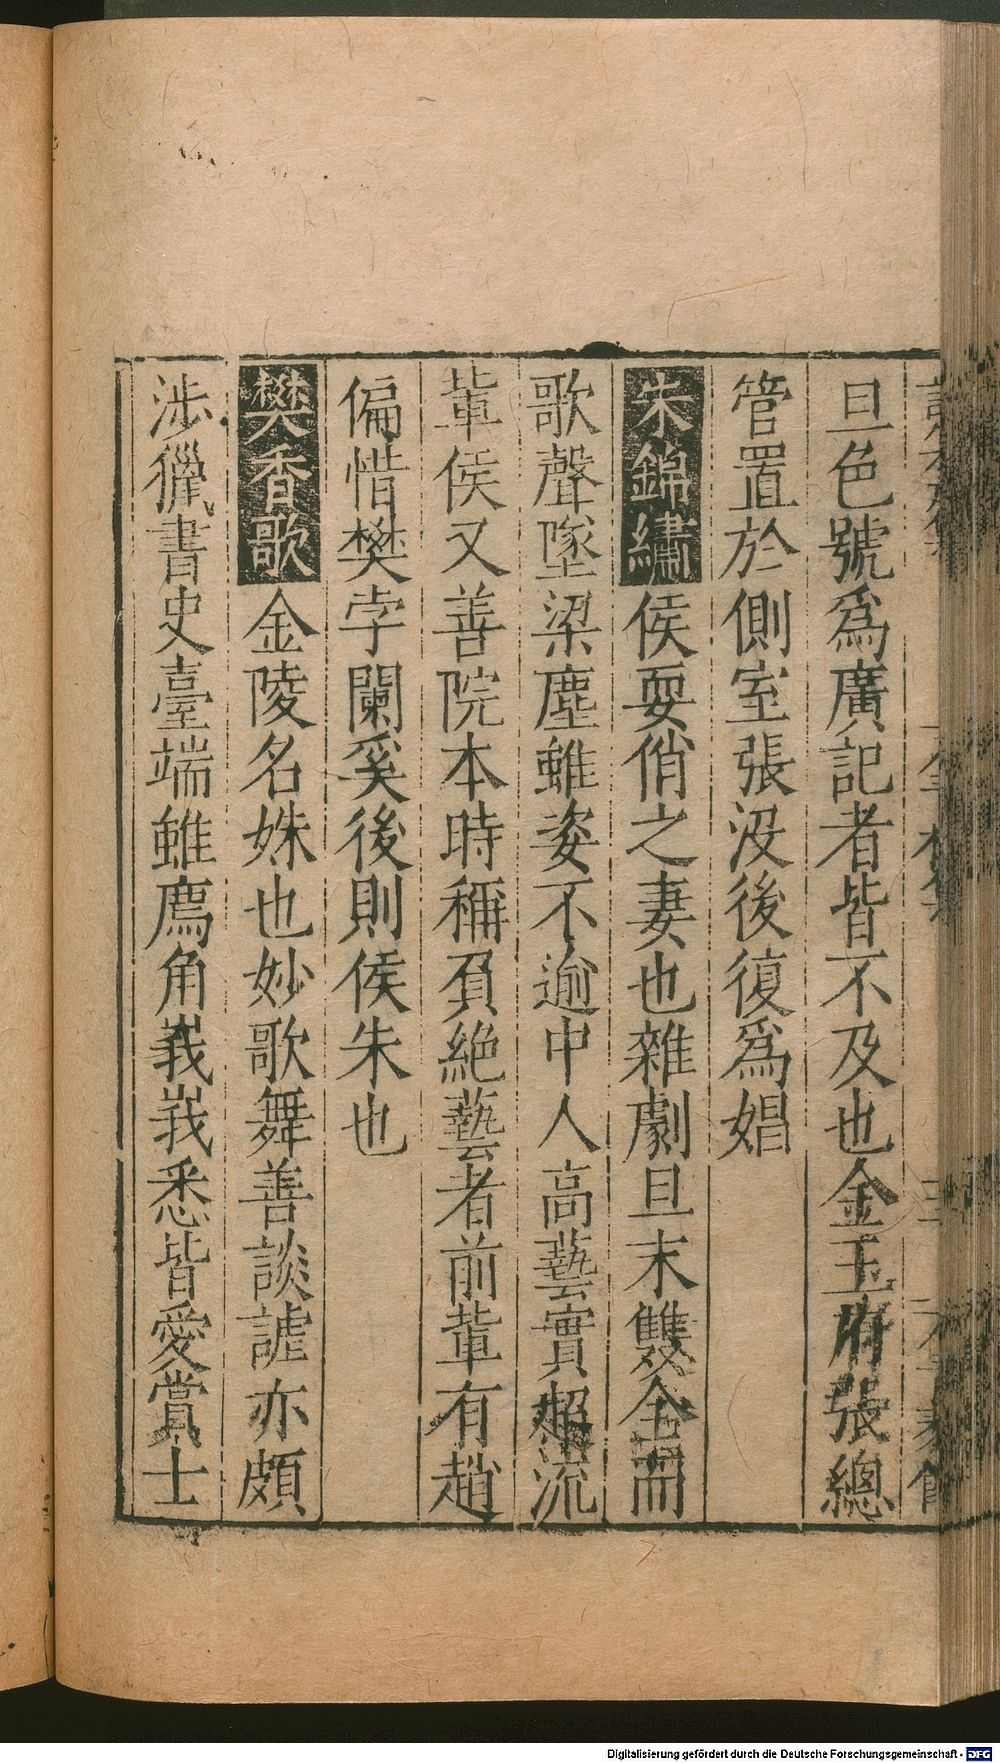 旦色號爲廣記者皆不及也金玉府張總
管置於側室張没後復爲娼
朱錦繡侯耍俏之妻也雜劇旦末雙全而
歌聲墜梁塵雖姿不逾中人高藝實超流
輩侯又善院本時稱負絶藝者前輩有趙
偏惜樊孛闌奚後則侯朱也
樊香歌金陵名姝也妙歌舞善談謔亦頗
涉獵書史臺端雖廌角峩峩悉皆愛賞士
Digitalisierung gefördert durch die Deutsche Forschungsgemeinschaft - DFG